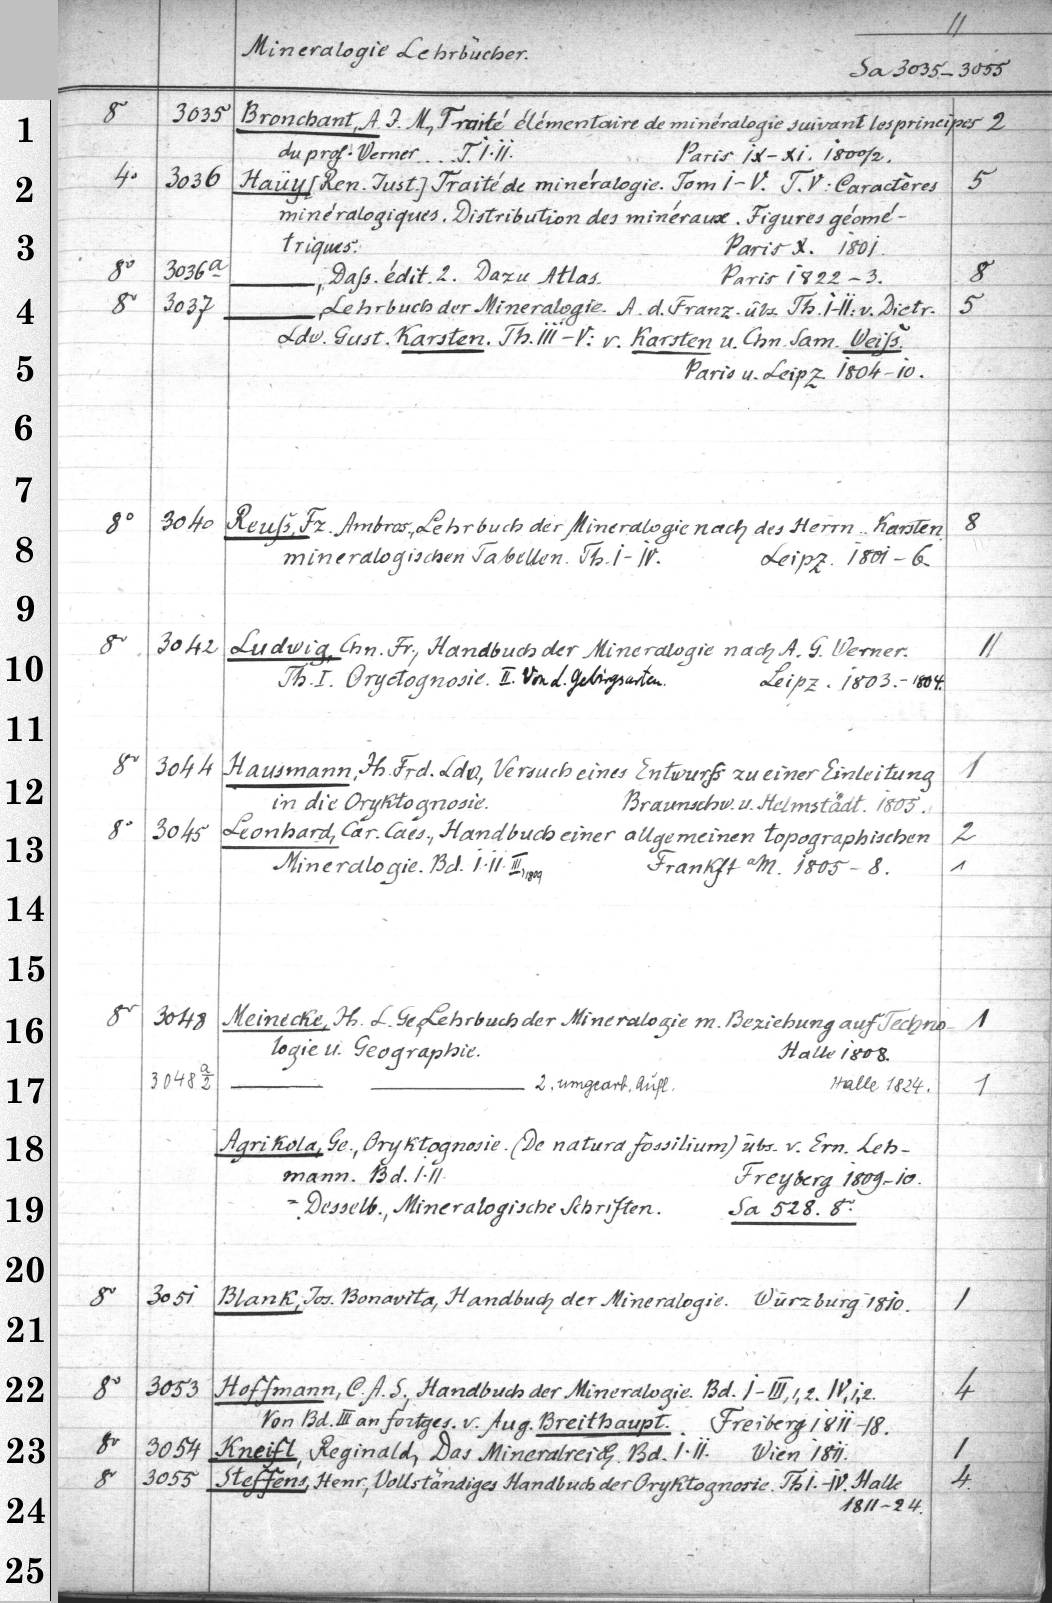 11
Mineralogie Lehrbücher.
Sa 3035–3055
1
8° 3035 Bronchant, A. J. M., Traité élémentaire de minéralogie suivant les principes 2
du prof. Verner ... T. I.II. Paris IX–XI. 1800/2.
2
4° 3036 Haüy [Ren. Just.] Traité de minéralogie. Tom I–V. T. V: Caractères 5
minéralogiques. Distribution des minéraux. Figures géomé-
3
triques. Paris X. 1801.
8° 3036a ———, Dass. édit. 2. Dazu Atlas. Paris 1822–3. 8
4
8° 3037 ———, Lehrbuch der Mineralogie. A. d. Franz. übs. Th. I–II: v. Dietr. 5
Ldw. Gust. Karsten. Th. III–V: v. Karsten u. Chn. Sam. Weiß.
5
Paris u. Leipz. 1804–10.
6
7
8° 3040 Reuß, Fz. Ambros., Lehrbuch der Mineralogie nach des Herrn .. Karsten 8
8
mineralogischen Tabellen. Th. I–IV. Leipz. 1801–6.
9
8° 3042 Ludwig, Chn. Fr., Handbuch der Mineralogie nach A. G. Verner. II
10
Th. I. Oryctognosie. II. Von d. Gebirgsarten. Leipz. 1803.–1804.
11
8° 3044 Hausmann, Jh. Frd. Ldw., Versuch eines Entwurfs zu einer Einleitung 1
12
in die Oryktognosie. Braunschw. u. Helmstädt. 1805.
8° 3045 Leonhard, Car. Caes., Handbuch einer allgemeinen topographischen 2
13
Mineralogie. Bd. I.II. III, 1809 Frankft a M. 1805–8. 1
14
15
8° 3048 Meinecke, Jh. L. Ge., Lehrbuch der Mineralogie m. Beziehung auf Techno- 1
16
logie u. Geographie. Halle 1808.
17
3048 a/2 ——— ——— 2. umgearb. Aufl. Halle 1824. 1
18
Agrikola, Ge., Oryktognosie. (De natura fossilium) übs. v. Ern. Leh-
mann. Bd. I.II. Freyberg 1809–10.
19
= Desselb., Mineralogische Schriften. Sa 528. 8°.
20
8° 3051 Blank, Jos. Bonavita, Handbuch der Mineralogie. Würzburg 1810. 1
21
22
8° 3053 Hoffmann, C. A. S., Handbuch der Mineralogie. Bd. I–III, 1, 2. IV, 1, 2. 4
Von Bd. III an fortges. v. Aug. Breithaupt. Freiberg 1811–18.
23
8° 3054 Kneifl, Reginald, Das Mineralreich. Bd. I.II. Wien 1811. 1
8° 3055 Steffens, Henr., Vollständiges Handbuch der Oryktognosie. Th I.–IV. Halle 4
24
1811–24.
25